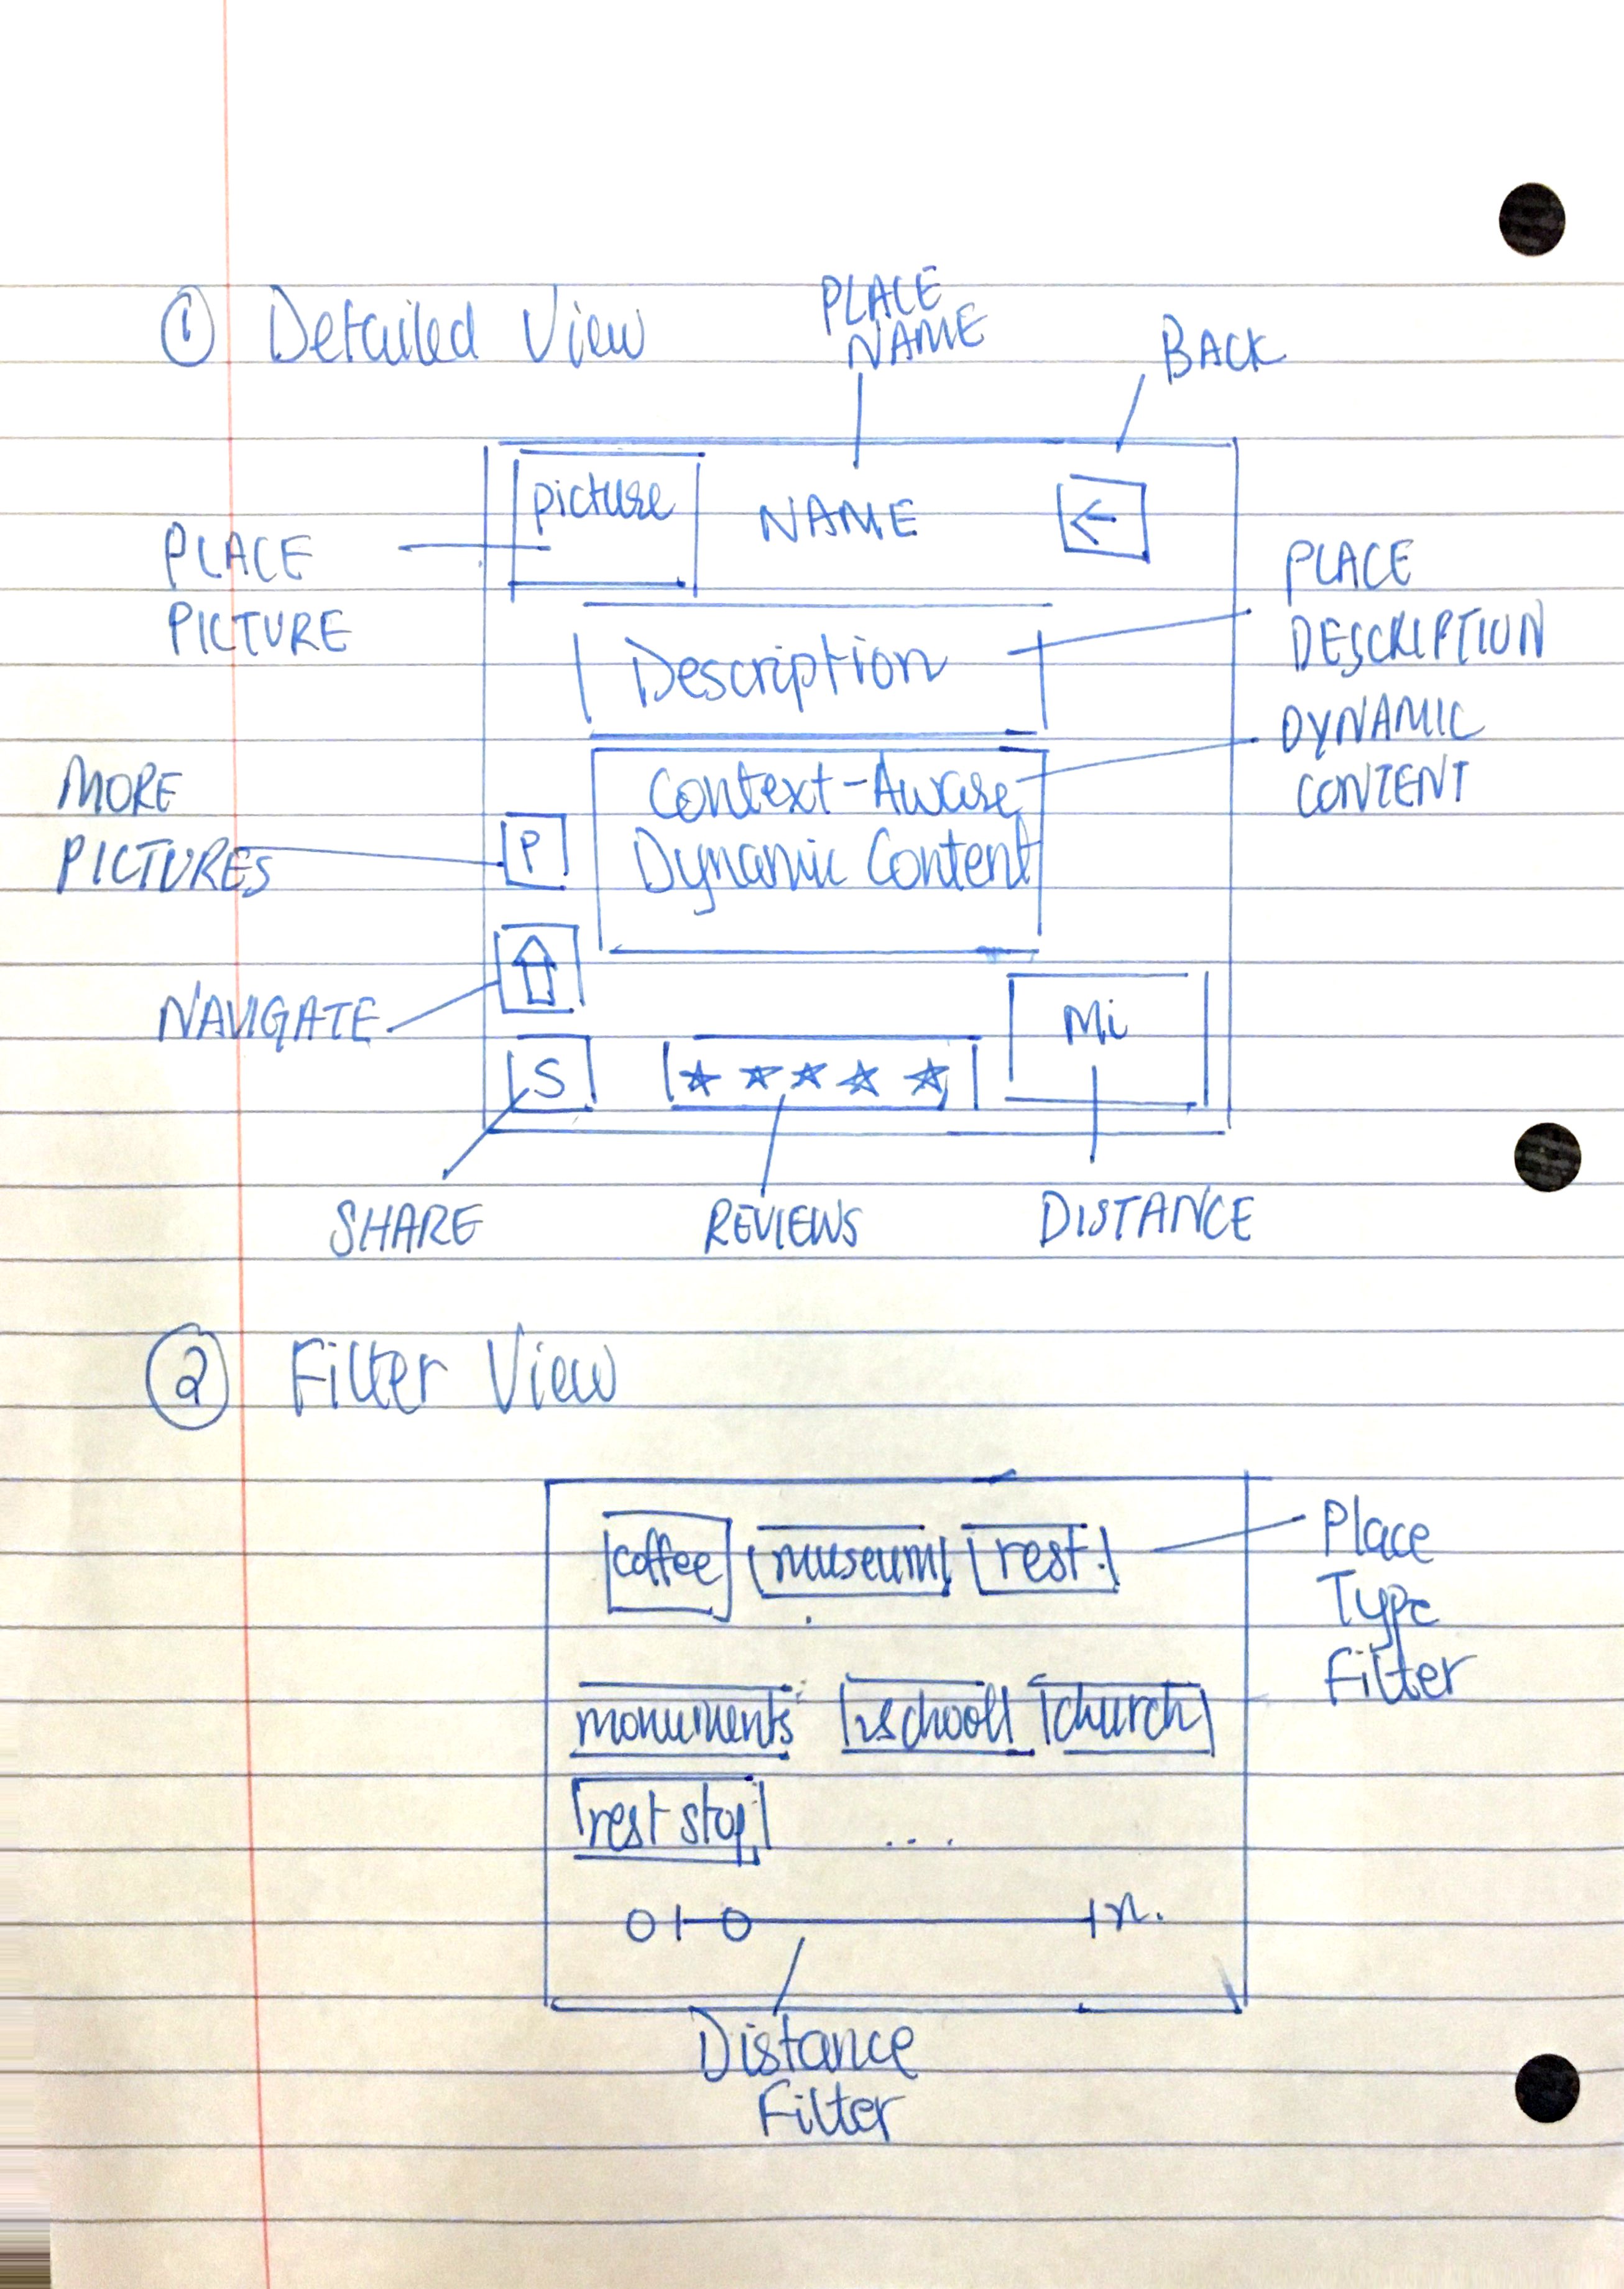 ① Detailed View
PLACE
NAME
BACK
picture
NAME
←
PLACE
PICTURE
PLACE
DESCRIPTION
Description
DYNAMIC
CONTENT
Context-Aware
Dynamic Content
MORE
PICTURES
P
NAVIGATE
Mi
S
★ ★ ★ ★ ★
SHARE
REVIEWS
DISTANCE
② Filter View
coffee museum rest.
Place
Type
Filter
monuments school church
rest stop ....
0 n.
Distance
Filter